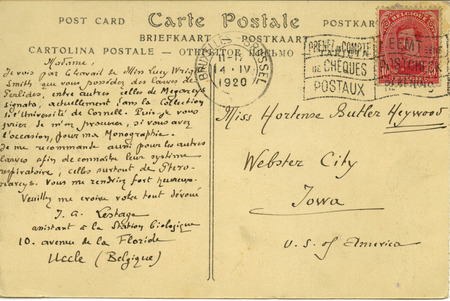 POST CARD Carte Postale POSTKARTE
BRIEFKAART — POSTKAART
CARTOLINA POSTALE — ОТКРЫТОЕ ПИСЬМО
Madame,
Je vois par l'travail de Miss Lucy Wright
Smith que vous possédez des larves de
Perlides, entre autres celles de Megarcys
signata, actuellement dans la Collection
de l'Université de Cornell. Puis-je vous
prier de m'en procurer, si vous avez
l'occasion, pour ma Monographie.
Je me recommande aussi pour les autres
larves afin de connaître leur système
respiratoire; celles surtout de Ptero-
narcys. Vous me rendriez fort heureux.
Veuillez me croire votre tout dévoué
J. A. Lestage
assistant à la Station biologique
10. avenue de la Floride
Uccle (Belgique)
BRUSSEL
14-IV
1920
PRENEZ UN COMPTE
DE CHEQUES
POSTAUX
NEEMT EENE
POSTCHECK
REKENING
BELGIQUE
Miss Hortense Butler Heywood
Webster City
Iowa
U.S. of America